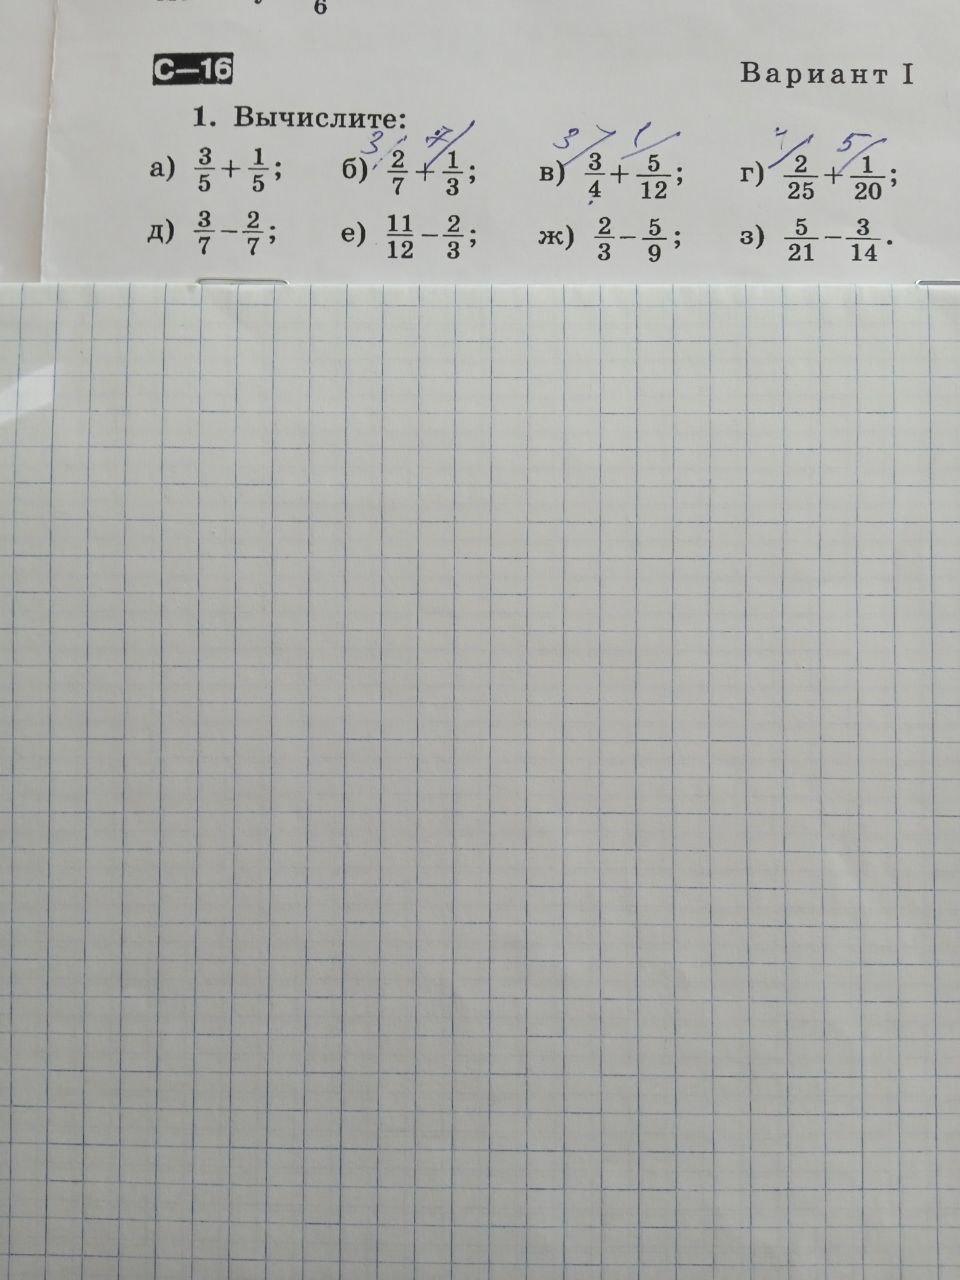 6
С—16
Вариант I
1. Вычислите:
3 7 3 1 5
а) 3/5 + 1/5; б) 2/7 + 1/3; в) 3/4 + 5/12; г) 2/25 + 1/20;
д) 3/7 − 2/7; е) 11/12 − 2/3; ж) 2/3 − 5/9; з) 5/21 − 3/14.